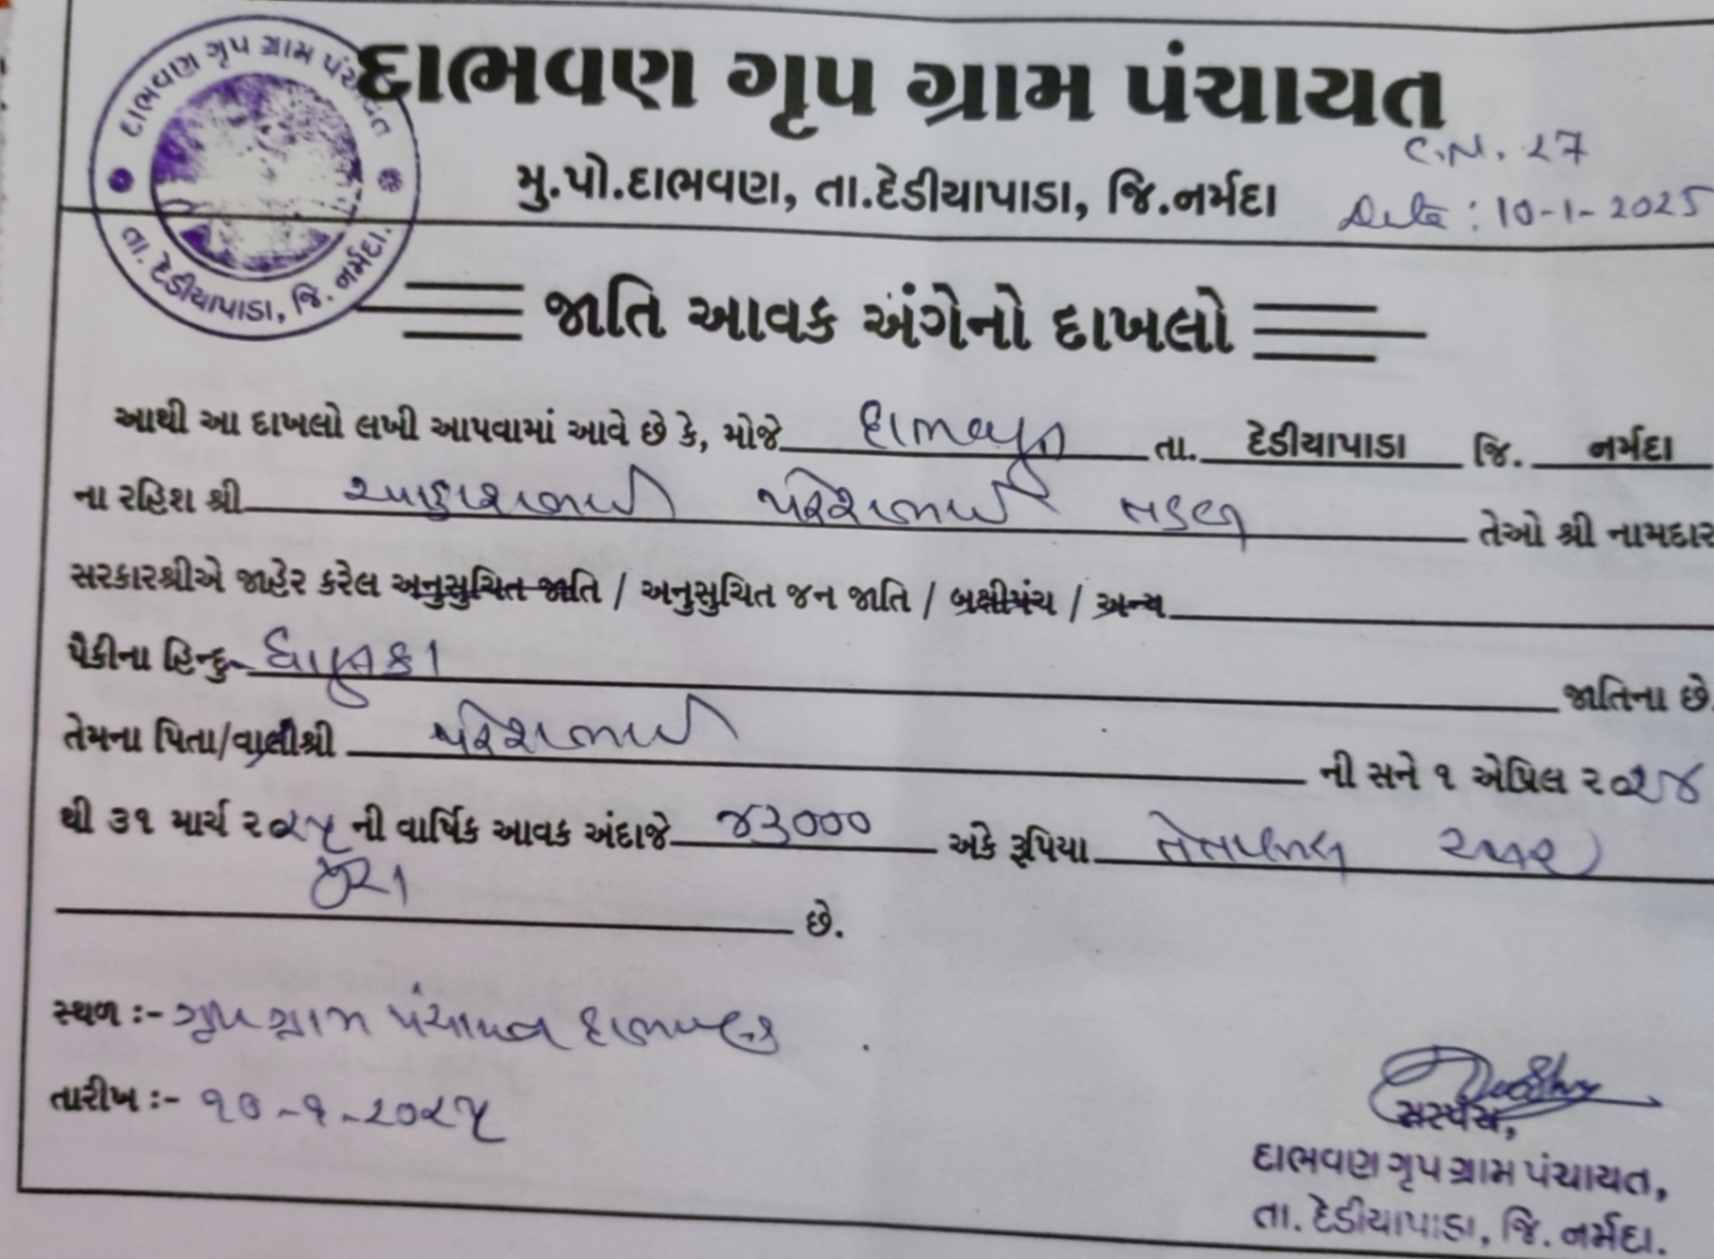 દાભવણ ગૃપ ગ્રામ પંચાયત
તા. દેડીયાપાડા, જિ. નર્મદા.
દાભવણ ગૃપ ગ્રામ પંચાયત
C.N. 27
મુ.પો.દાભવણ, તા.દેડીયાપાડા, જિ.નર્મદા
Date : 10-1-2025
જાતિ આવક અંગેનો દાખલો
આથી આ દાખલો લખી આપવામાં આવે છે કે, મોજે દાભવણ તા. દેડીયાપાડા જિ. નર્મદા
ના રહિશ શ્રી પરેશભાઈ તડવી તેઓ શ્રી નામદાર
સરકારશ્રીએ જાહેર કરેલ અનુસુચિત જાતિ / અનુસુચિત જન જાતિ / બક્ષીપંચ / અન્ય
પૈકીના હિન્દુ ધાણકા જાતિના છે.
તેમના પિતા/વાલીશ્રી પરેશભાઈ ની સને ૧ એપ્રિલ ૨૦૨૪
થી ૩૧ માર્ચ ૨૦૨૫ ની વાર્ષિક આવક અંદાજે ૪૩૦૦૦ અંકે રૂપિયા
પુરા છે.
સ્થળ :- ગૃપ ગ્રામ પંચાયત દાભવણ
તારીખ :- ૧૦-૧-૨૦૨૫
સરપંચ,
દાભવણ ગૃપ ગ્રામ પંચાયત,
તા. દેડીયાપાડા, જિ. નર્મદા.